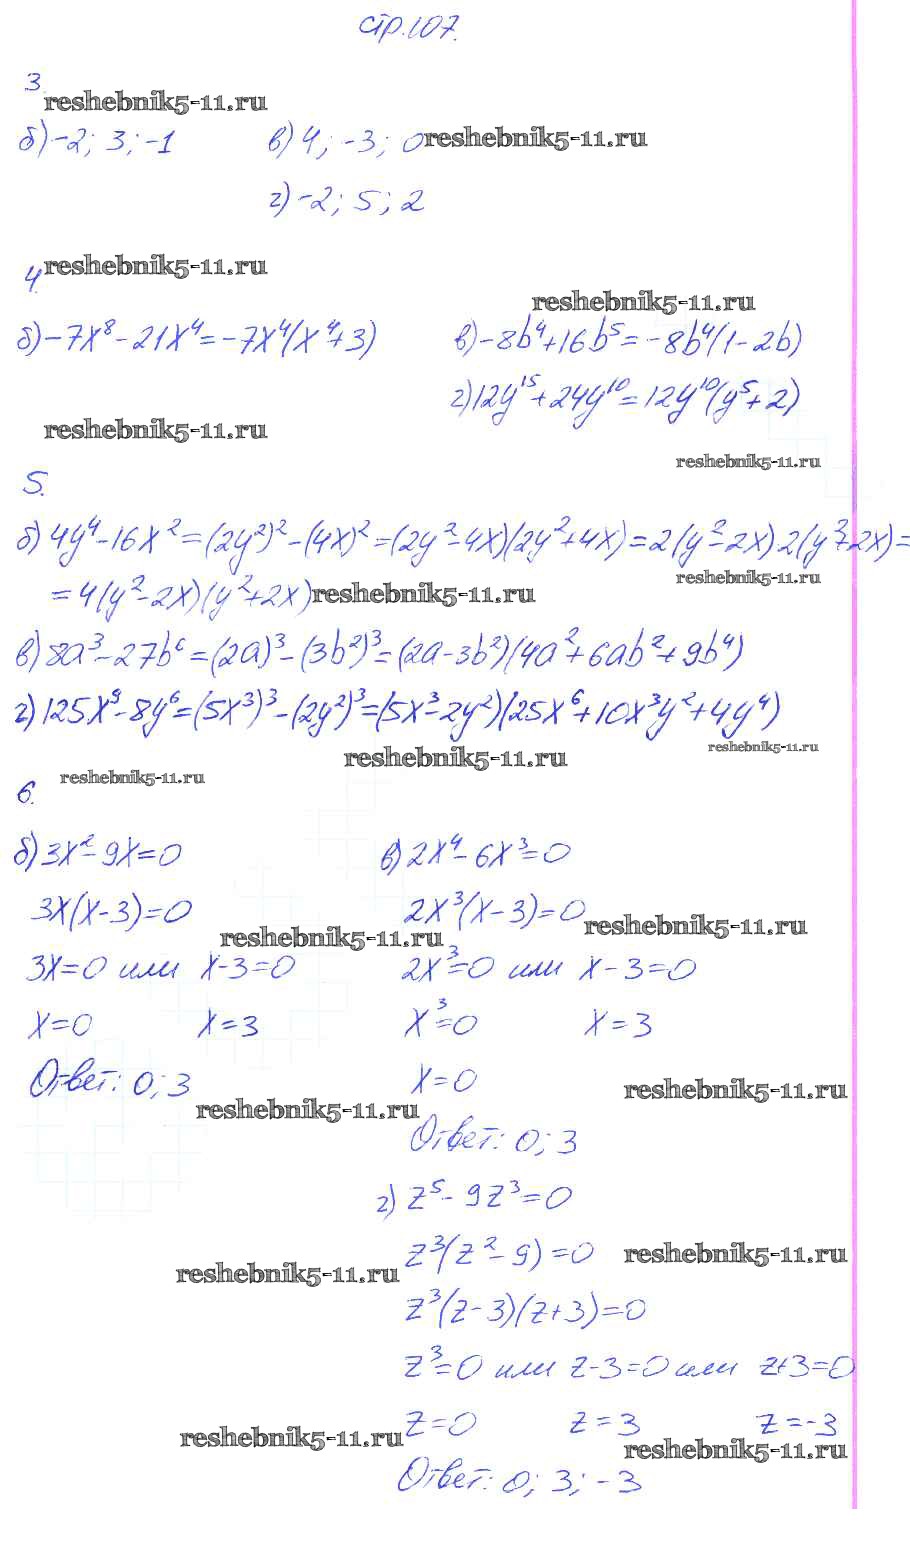 стр.107.
3.
reshebnik5-11.ru
б) -2; 3; -1 в) 4; -3; 0 reshebnik5-11.ru
г) -2; 5; 2
4. reshebnik5-11.ru
reshebnik5-11.ru
б) -7x⁸ - 21x⁴ = -7x⁴(x⁴+3) в) -8b⁴+16b⁵ = -8b⁴(1-2b)
г) 12y¹⁵ + 24y¹⁰ = 12y¹⁰(y⁵+2)
reshebnik5-11.ru
reshebnik5-11.ru
5.
б) 4y⁴-16x² = (2y²)² - (4x)² = (2y²-4x)(2y²+4x) = 2(y²-2x)2(y²+2x) =
reshebnik5-11.ru
= 4(y²-2x)(y²+2x) reshebnik5-11.ru
в) 8a³-27b⁶ = (2a)³-(3b²)³ = (2a-3b²)(4a²+6ab²+9b⁴)
г) 125x⁹-8y⁶ = (5x³)³-(2y²)³ = (5x³-2y²)(25x⁶+10x³y²+4y⁴)
reshebnik5-11.ru reshebnik5-11.ru
reshebnik5-11.ru
6.
б) 3x²-9x=0 в) 2x⁴-6x³=0
3x(x-3)=0 2x³(x-3)=0
reshebnik5-11.ru reshebnik5-11.ru
3x=0 или x-3=0 2x³=0 или x-3=0
x=0 x=3 x³=0 x=3
Ответ: 0; 3 x=0 reshebnik5-11.ru
reshebnik5-11.ru
Ответ: 0; 3
г) z⁵-9z³=0
z³(z²-9)=0 reshebnik5-11.ru
reshebnik5-11.ru
z³(z-3)(z+3)=0
z³=0 или z-3=0 или z+3=0
z=0 z=3 z=-3
reshebnik5-11.ru reshebnik5-11.ru
Ответ: 0; 3; -3